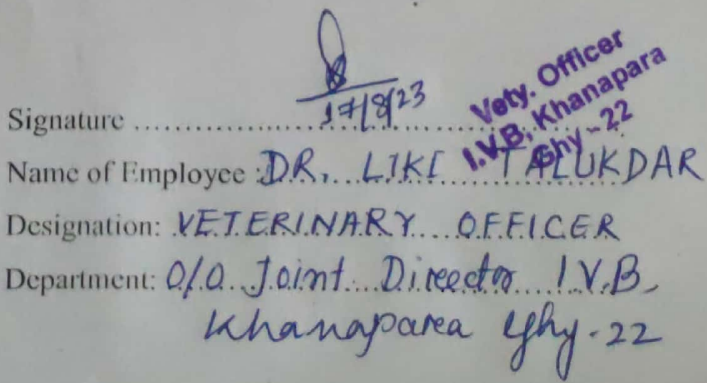 17/8/23
Vety. Officer
I.V.B, Khanapara
Ghy-22
Signature ..........
Name of Employee : DR. LIKI TALUKDAR
Designation: VETERINARY OFFICER
Department: O/O Joint Director I.V.B,
Khanapara Ghy-22